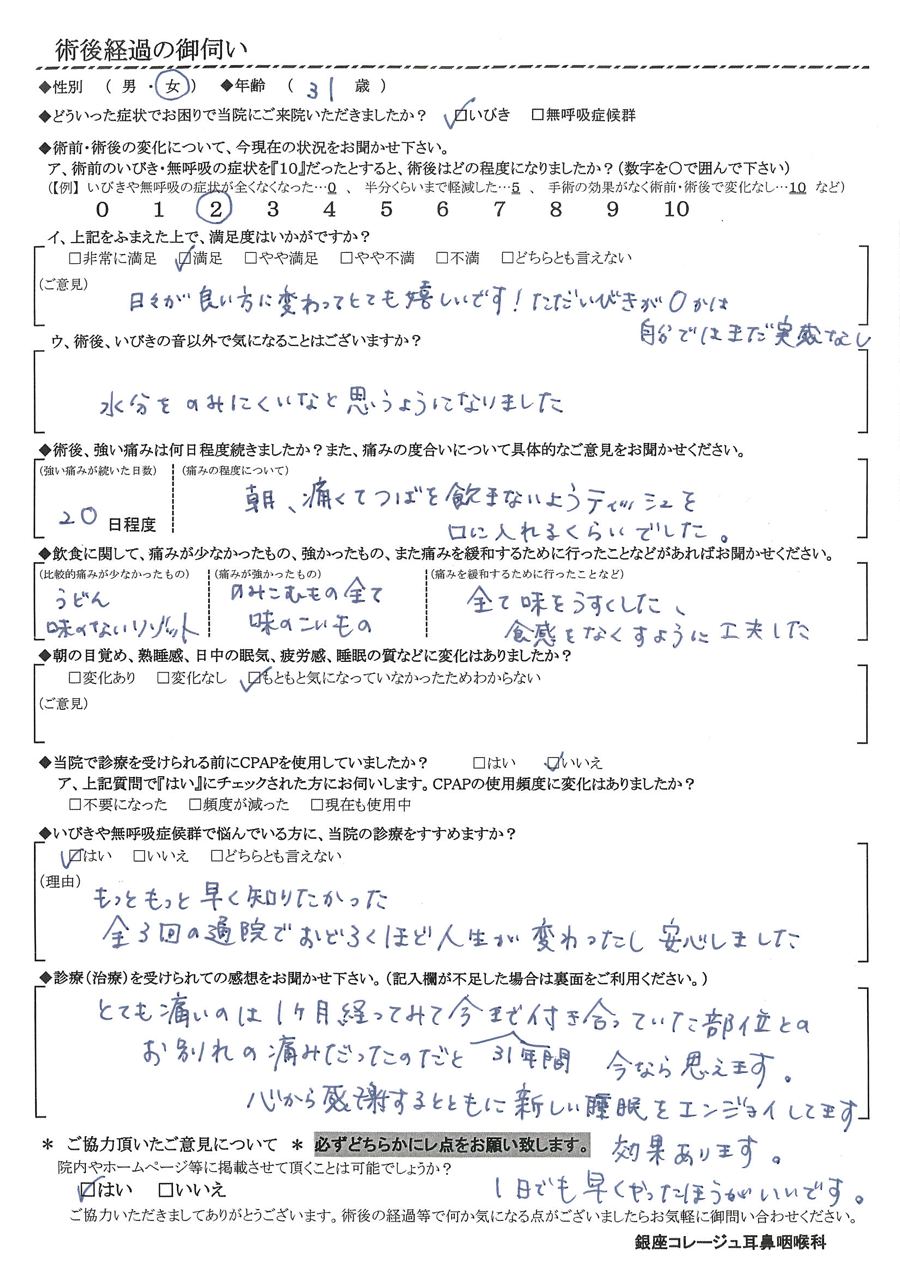 術後経過の御伺い
◆性別 ( 男 ・ 女 ) ◆年齢 ( 31 歳 )
◆どういった症状でお困りで当院にご来院いただきましたか? ☑いびき □無呼吸症候群
◆術前・術後の変化について、今現在の状況をお聞かせ下さい。
ア、術前のいびき・無呼吸の症状を『10』だったとすると、術後はどの程度になりましたか?(数字を〇で囲んで下さい)
(【例】 いびきや無呼吸の症状が全くなくなった…0 、 半分くらいまで軽減した…5 、 手術の効果がなく術前・術後で変化なし…10 など)
0 1 2 3 4 5 6 7 8 9 10
イ、上記をふまえた上で、満足度はいかがですか?
□非常に満足 ☑満足 □やや満足 □やや不満 □不満 □どちらとも言えない
(ご意見)
日々が良い方に変わってとても嬉しいです!ただいびきが0かは
自分ではまだ実感なし
ウ、術後、いびきの音以外で気になることはございますか?
水分をのみにくいなと思うようになりました
◆術後、強い痛みは何日程度続きましたか?また、痛みの度合いについて具体的なご意見をお聞かせください。
(強い痛みが続いた日数) (痛みの程度について)
朝、痛くてつばを飲まないようティッシュを
20 日程度 口に入れるくらいでした。
◆飲食に関して、痛みが少なかったもの、強かったもの、また痛みを緩和するために行ったことなどがあればお聞かせください。
(比較的痛みが少なかったもの) (痛みが強かったもの) (痛みを緩和するために行ったことなど)
うどん のみこむもの全て 全て味をうすくした、
味のないリゾット 味のこいもの 食感をなくすように工夫した
◆朝の目覚め、熟睡感、日中の眠気、疲労感、睡眠の質などに変化はありましたか?
□変化あり □変化なし ☑もともと気になっていなかったためわからない
(ご意見)
◆当院で診療を受けられる前にCPAPを使用していましたか? □はい ☑いいえ
ア、上記質問で『はい』にチェックされた方にお伺いします。CPAPの使用頻度に変化はありましたか?
□不要になった □頻度が減った □現在も使用中
◆いびきや無呼吸症候群で悩んでいる方に、当院の診療をすすめますか?
☑はい □いいえ □どちらとも言えない
(理由)
もっともっと早く知りたかった
全3回の通院でおどろくほど人生が変わったし安心しました
◆診療(治療)を受けられての感想をお聞かせ下さい。(記入欄が不足した場合は裏面をご利用ください。)
とても痛いのは1ヶ月経ってみて今まで付き合っていた部位との
お別れの痛みだったのだと 31年間 今なら思えます。
心から感謝するとともに新しい睡眠をエンジョイしてます
* ご協力頂いたご意見について * 必ずどちらかにレ点をお願い致します。
効果あります。
院内やホームページ等に掲載させて頂くことは可能でしょうか?
☑はい □いいえ
1日でも早くやったほうがいいです。
ご協力いただきましてありがとうございます。術後の経過等で何か気になる点がございましたらお気軽に御問い合わせください。
銀座コレージュ耳鼻咽喉科